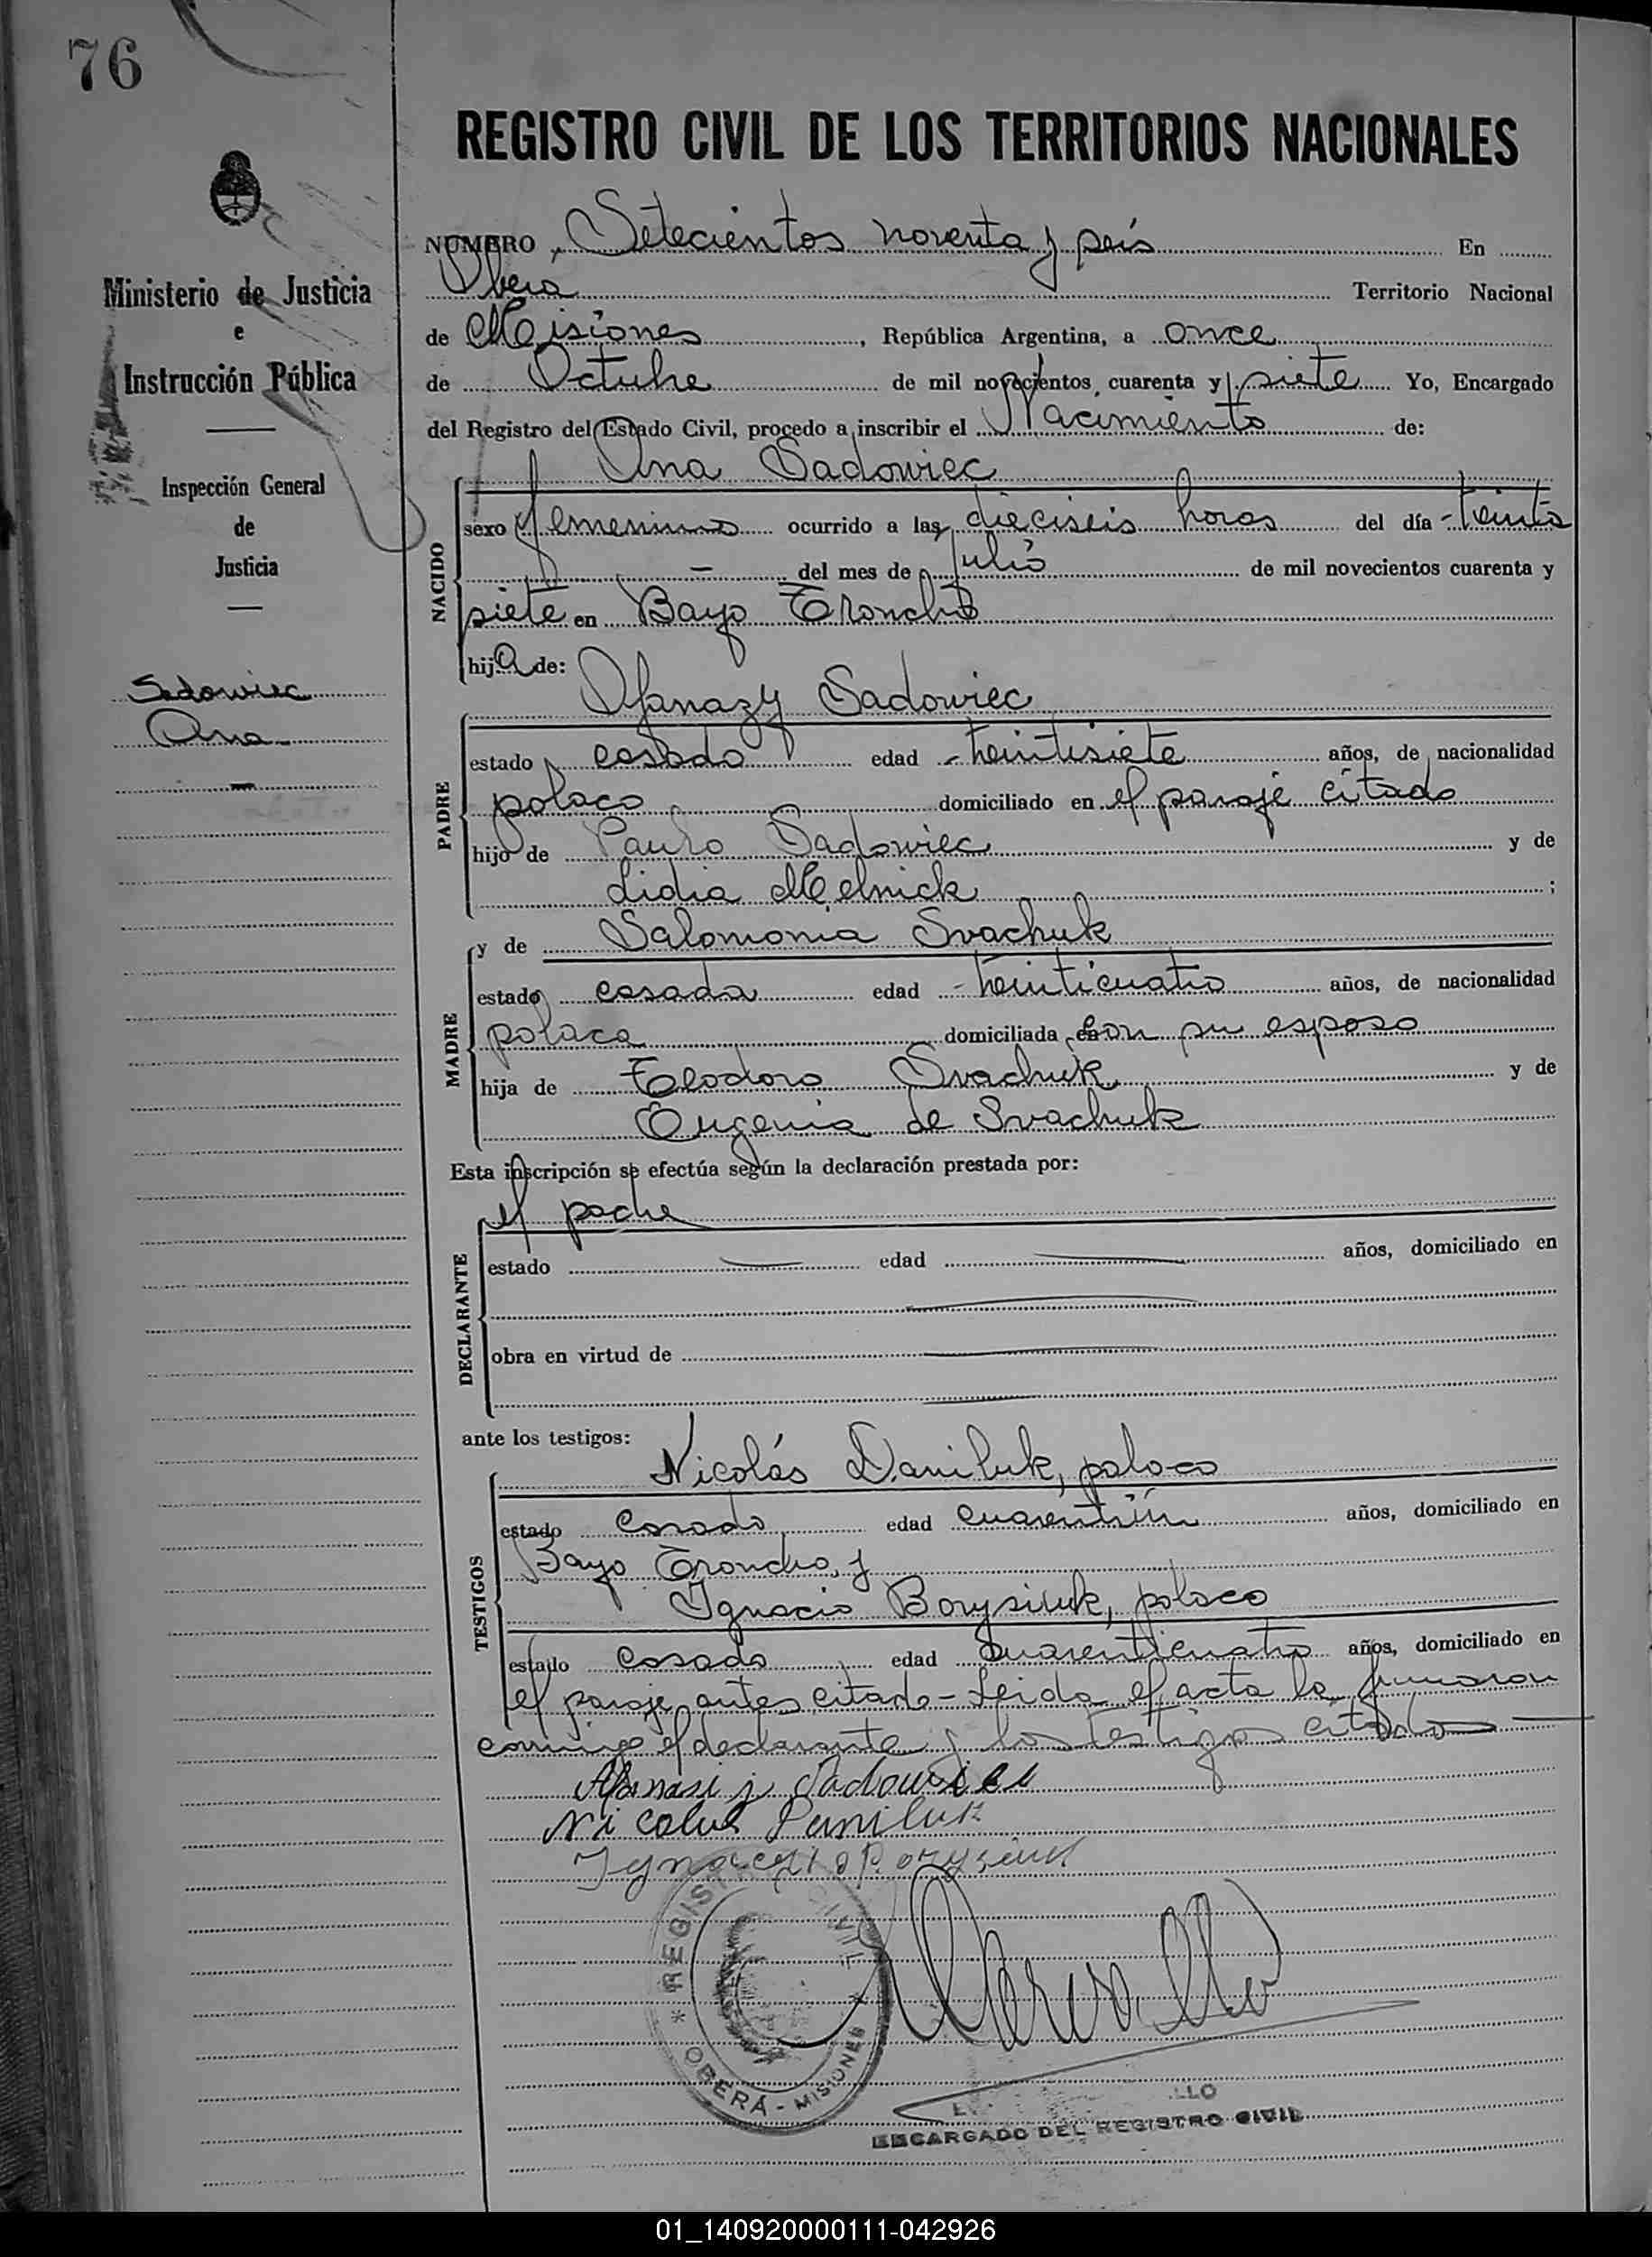 76
REGISTRO CIVIL DE LOS TERRITORIOS NACIONALES
Ministerio de Justicia
e
Instrucción Pública
Inspección General
de
Justicia
Sadowiec
Ana
NÚMERO Setecientos noventa y seis En
Obera Territorio Nacional
de Misiones, República Argentina, a once
de Octubre de mil novecientos cuarenta y siete Yo, Encargado
del Registro del Estado Civil, procedo a inscribir el Nacimiento de:
Ana Sadowiec
NACIDO
sexo femenino ocurrido a las dieciseis horas del día treinta
— del mes de julio de mil novecientos cuarenta y
siete en Bayo Troncho
hija de:
Afanazy Sadowiec
PADRE
estado casado edad treintisiete años, de nacionalidad
polaco domiciliado en el paraje citado
hijo de Paulo Sadowiec y de
Lidia Melnick;
y de Salomonia Svachuk
MADRE
estado casada edad treinticuatro años, de nacionalidad
polaca domiciliada con su esposo
hija de Teodoro Svachuk y de
Eugenia de Svachuk
Esta inscripción se efectúa según la declaración prestada por:
el padre
DECLARANTE
estado — edad — años, domiciliado en
obra en virtud de —
ante los testigos:
Nicolás Daniluk, polaco
TESTIGOS
estado casado edad cuarentiún años, domiciliado en
Bayo Troncho, y
Ignacio Borysiuk, polaco
estado casado edad cuarenticuatro años, domiciliado en
el paraje antes citado - Leida el acta la firmaron
conmigo el declarante y los testigos citados —
Afanasi j Sadowiec
Nicolus Daniluk
REGISTRO CIVIL
OBERÁ - MISIONES
LLO
ENCARGADO DEL REGISTRO CIVIL
01_140920000111-042926